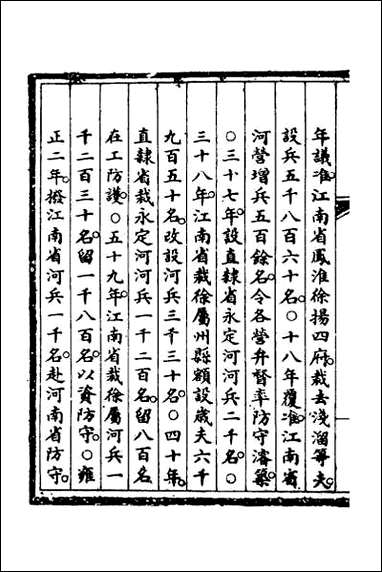 年議准江南省鳳淮徐揚四府裁去淺溜等夫
設兵五千八百六十名○十八年覆准江南省
河營增兵五百餘名令各營弁督率防守濬築
○三十七年設直隸省永定河河兵二千名○
三十八年江南省裁徐屬州縣額設歲夫六千
九百五十名改設河兵三千三十名○四十年
直隸省裁永定河河兵一千二百名留八百名
在工防護○五十九年江南省裁徐屬河兵一
千二百三十名留一千八百名以資防守○雍
正二年撥江南省河兵一千名赴河南省防守